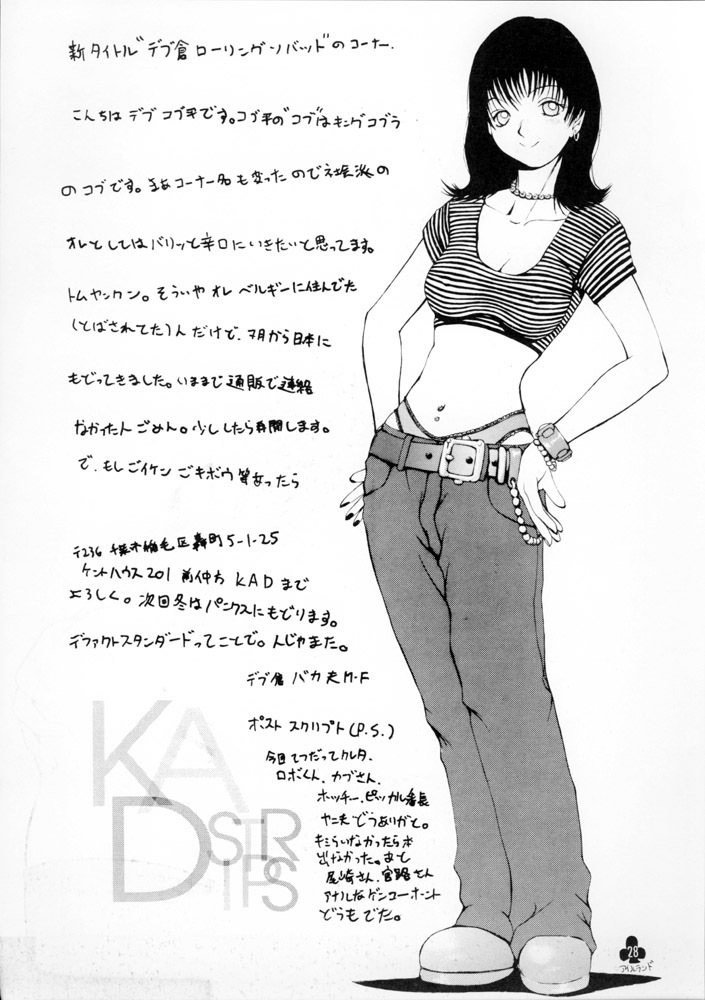 新タイトル"デブ倉ローリングソバッド"のコーナー.
こんちは デブ コブ平です。コブ平の"コブ"はキングコブラ
のコブです。まあコーナー名も変ったので 派の
オレとしてはバリッと辛口にいきたいと思ってます。
トムヤンクン。そういや オレ ベルギーに住んでた
(とばされてた)人だけど、 月から日本に
もどってきました。いままで通販で連絡
なかった人ごめん。少ししたら再開します。
で、もしごイケン ごキボウ等あったら
〒236 区 町5-1-25
ケントハウス201 方 KADまで
よろしく。次回冬はパンクスにもどります。
デファクトスタンダードってことで。んじゃまた。
デブ倉 バカ夫 M-F
ポストスクリプト(P.S.)
今回てつだってクレタ、
ロボくん、カブさん、
ホッチー、ピッカル番長
ヤニ夫どうありがと。
キミらいなかったら本
出なかった。あと
尾崎さん、宮路さん
アナルなゲンコーホント
どうもでた。
KAD
STR
IPS
28
アイルランド